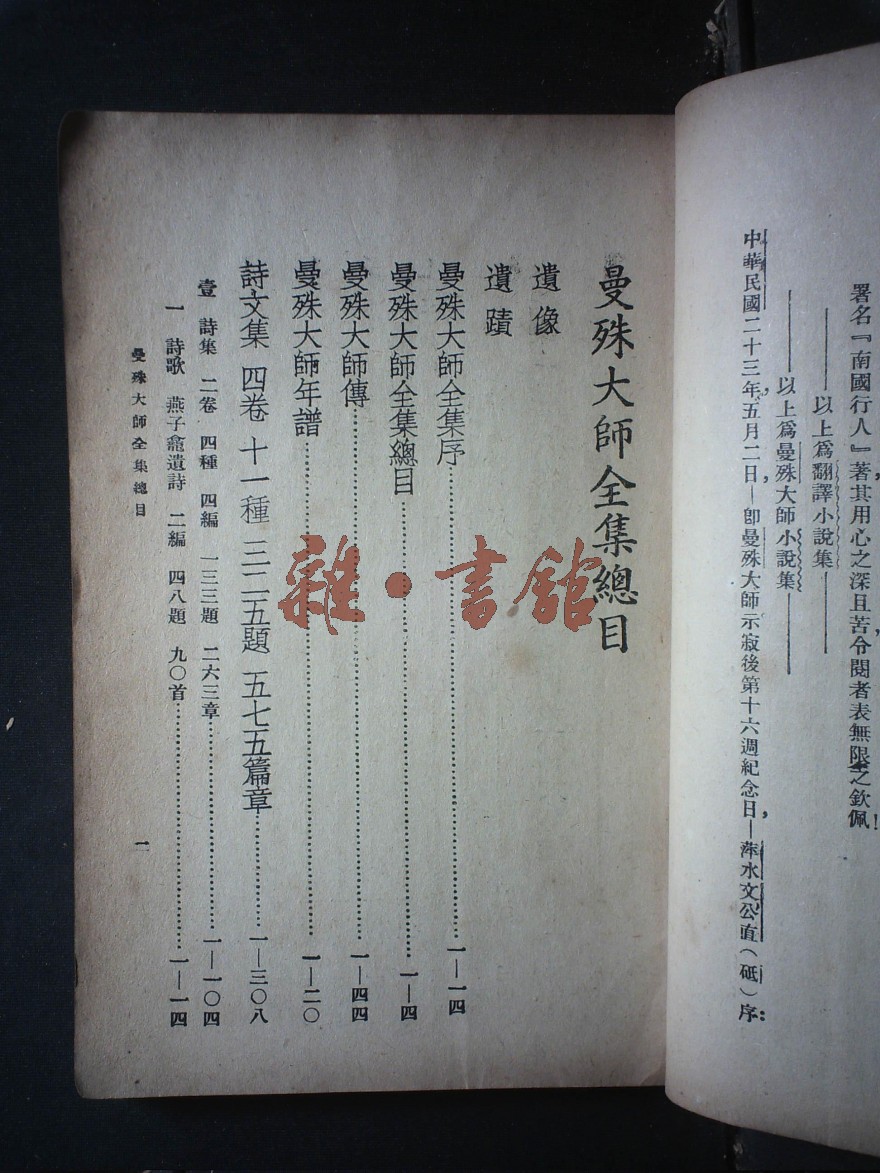 署名『南國行人』著其用心之深且苦，令閱者表無限之欽佩！
——以上爲翻譯小說集——
——以上爲曼殊大師小說集——
中華民國二十三年，五月二日—卽曼殊大師示寂後第十六週紀念日，—萍水文公直（砥）序：
曼殊大師全集總目
遺像
遺蹟
曼殊大師全集序……一—一四
曼殊大師全集總目……一—四
曼殊大師傳……一—四四
曼殊大師年譜……一—二〇
詩文集 四卷 十一種 三二五題 五七五篇章……一—三〇八
壹 詩集 二卷 四種 四編 一三三題 二六三章……一—一〇四
一 詩歌 燕子龕遺詩 二編 四八題 九〇首……一—一四
曼殊大師全集總目
一
雜·書館